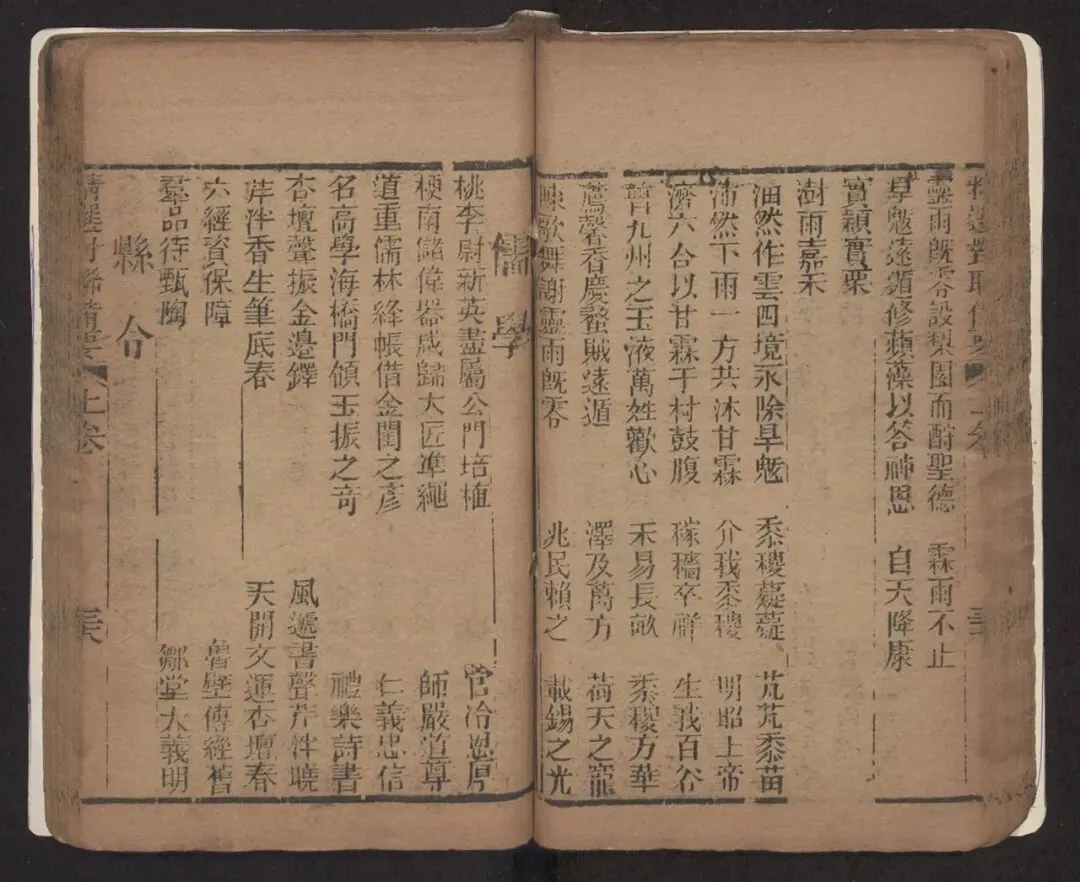 靈雨既零設梨園而酧聖德 霖雨不止
旱魃遠遁修蘋藻以答神恩 自天降康
實穎實栗
澍雨嘉禾
油然作雲四境永除旱魃 黍稷薿薿 芃芃黍苗
沛然下雨一方共沐甘霖 介我黍稷 明昭上帝
濟六合以甘霖千村鼓腹 稼穡卒痒 生我百谷
胃九州之玉液萬姓歡心 禾易長畝 黍稷方華
薦馨香慶蝥賊遠遁 澤及萬方 荷天之寵
陳歌舞謝靈雨既零 兆民賴之 載錫之光
儒學
桃李尉新英盡屬公門培植 官冷恩厚
梗南儲偉器咸歸大匠準繩 師嚴道尊
道重儒林絳帳借金閨之彥 仁義忠信
名高學海橋門領玉振之奇 禮樂詩書
杏壇聲振金邊鐸 風遞書聲芹泮曉
芹泮香生筆底春 天開文運杏壇春
六經資保障 魯壁傳經舊
羣品待甄陶 鄉堂大義明
縣令
精選對聯精要 上卷